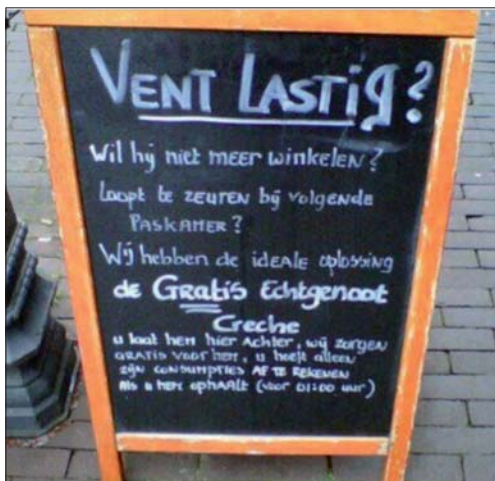 VENT LASTIG?
Wil hij niet meer winkelen?
Loopt te zeuren bij volgende
Paskamer?
Wij hebben de ideale oplossing
de Gratis Echtgenoot
Creche
u laat hem hier achter, wij zorgen
gratis voor hem, u hoeft alleen
zijn consumpties af te rekenen
Als u hem ophaalt (voor 01:00 uur)